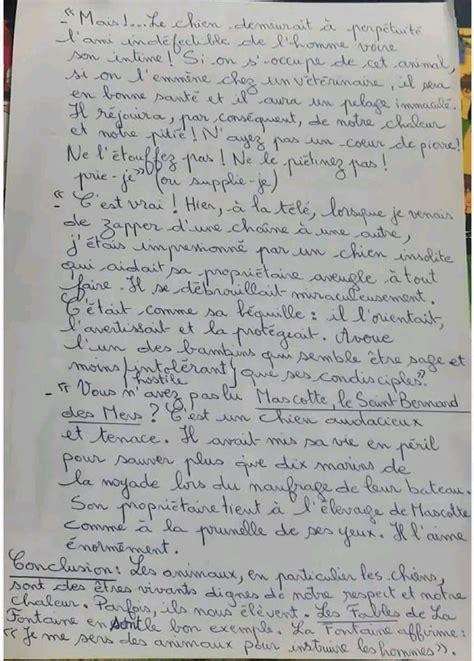 - "Mais !... Le chien demeurait à perpétuité
l'ami indéfectible de l'homme voire
son intime ! Si on s'occupe de cet animal,
si on l'emmène chez un vétérinaire, il sera
en bonne santé et il aura un pelage immaculé.
Il réjouira, par conséquent, de notre chaleur
et notre pitié ! N'ayez pas un coeur de pierre !
Ne l'étouffez pas ! Ne le piétinez pas !
prie-je" (ou supplie-je)
- "C'est vrai ! Hier, à la télé, lorsque je venais
de zapper d'une chaîne à une autre,
j'étais impressionné par un chien insolite
qui aidait sa propriétaire aveugle à tout
faire. Il se débrouillait miraculeusement.
C'était comme sa béquille : il l'orientait,
l'avertissait et la protégeait. Avoue
l'un des bambins qui semble être sage et
moins /intolérant/ que ses condisciples."
hostile
- "Vous n'avez pas lu Mascotte, le Saint Bernard
des Mers ? C'est un chien audacieux
et tenace. Il avait mis sa vie en péril
pour sauver plus que dix marins de
la noyade lors du naufrage de leur bateau.
Son propriétaire tient à l'élevage de Mascotte
comme à la prunelle de ses yeux. Il l'aime
énormément.
Conclusion : Les animaux, en particulier les chiens,
sont des êtres vivants dignes de notre respect et notre
chaleur. Parfois, ils nous élèvent. Les Fables de La
Fontaine en sont le bon exemple. La Fontaine affirme :
"Je me sers des animaux pour instruire les hommes".